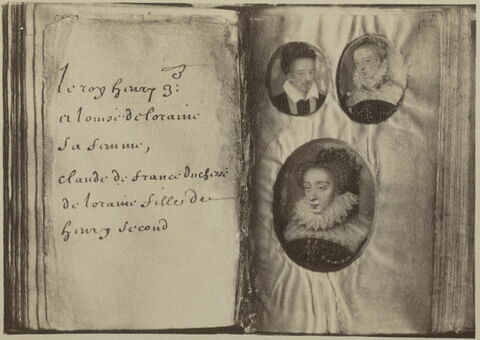 le roy henry 3:
et louise de loraine
sa femme,
claude de france duchesse
de loraine fille de
henry second